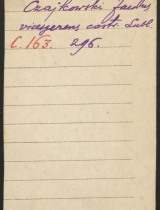 Czajkowski faulus
vicegerens castr. Lubl.
C. 163. 296.